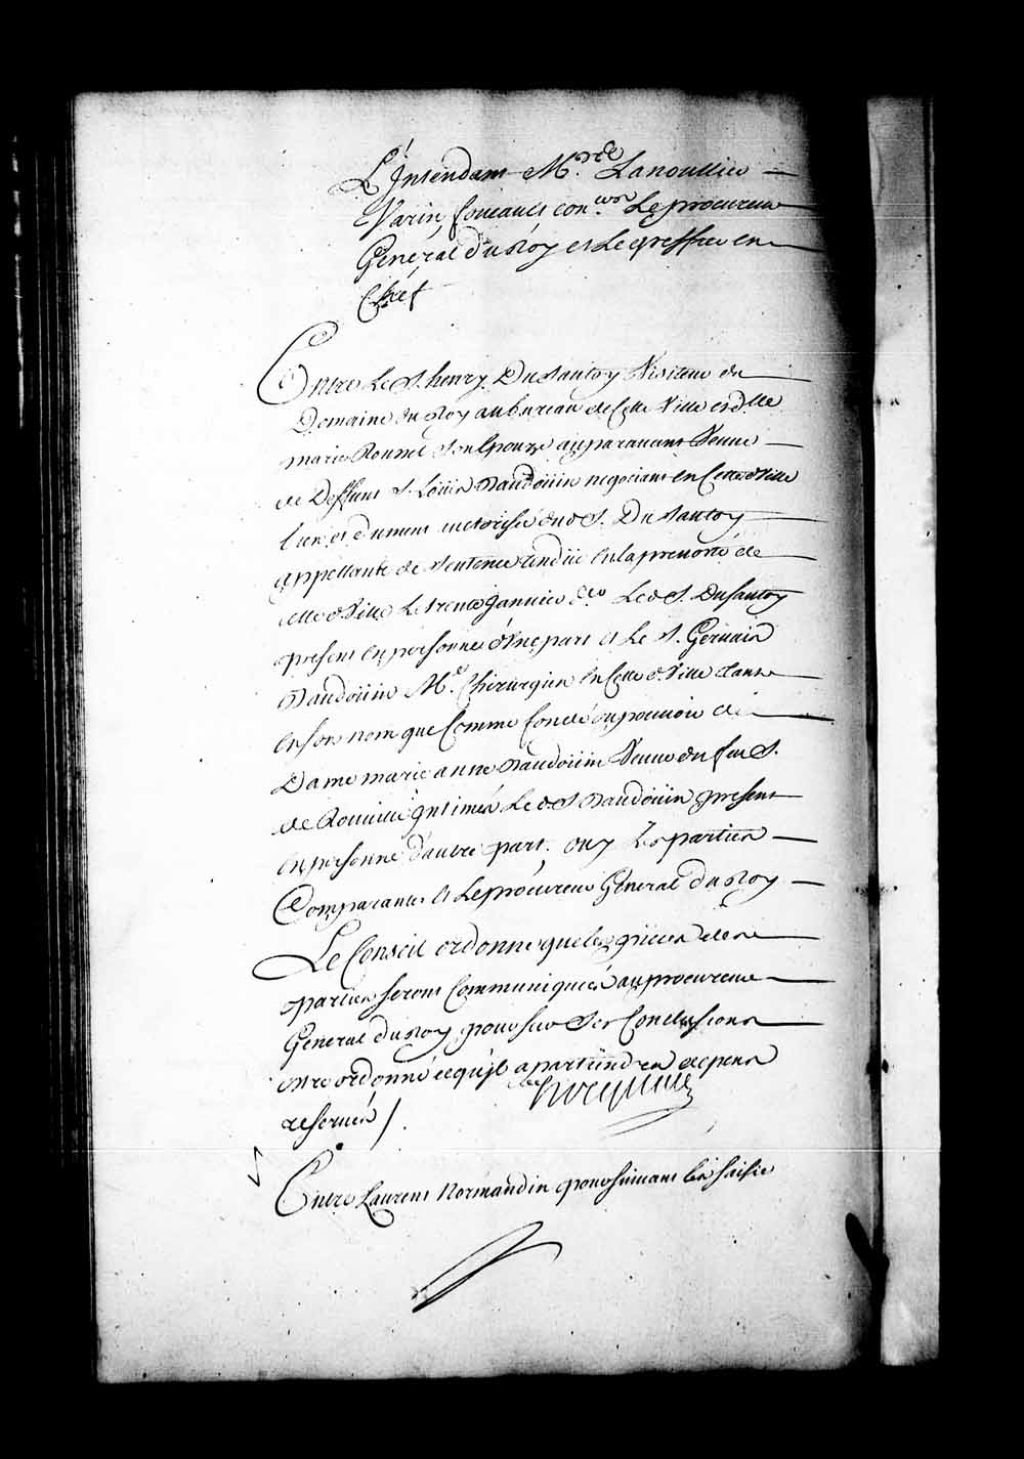 L'Intendant M.re Lanoullier
Varin, foucault con.ers Le procureur
General du Roy et Le greffier en
Chef
Entre Le S. henry Dusautoy Visiteur du
Domaine du Roy au bureau de Cette Ville et d.lle
marie Son Epouze auparavant Veuve
de Deffunt S. Loüis Baudoüin negotiant en Cette Ville
duement auctorisée dud S. Dusautoy
appellante de Sentence rendüe en la prevosté de
cette d Ville Le trente Janvier d.er Le d S. Dusautoy
present en personne d'Une part et Le S. Gervais
Baudoüin M.e Chirurgien en Cette d. Ville tant
en Son nom que Comme fondé de pouvoir de
Dame marie anne Baudoüin Veuve du feu S.
de Rouville Intimés Le d. S Baudoüin present
en personne d'autre part. ouy Les parties
Comparantes et Le procureur General du Roy
Le Conseil ordonne que les pieces des
parties seront Communiquées au procureur
General du Roy pour sur Ses Conclusions
estre ordonné ce qu'il apartiendra depens
reservés /.
Entre Laurent Normandin poursuivant la saisie